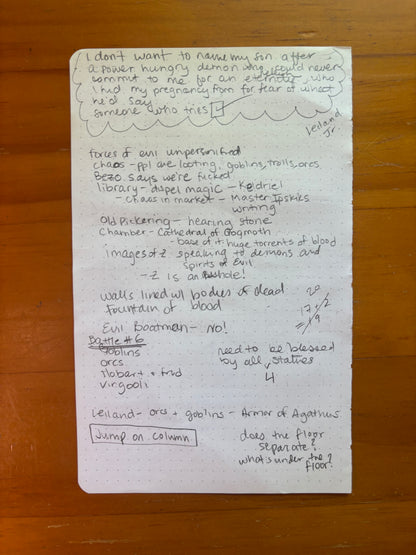 I don't want to name my son after
a power hungry demon who could never
commit to me for an eternity, who
I hid my pregnancy from for fear of what
he'd say.
someone who tries
Leiland
Jr.
forces of evil unpersonified
chaos - ppl are looting, goblins, trolls, orcs
Bezo says we're fucked
library - dispel magic - Keldriel
- chaos in market - Master Ipskies
writing
Old Pickering - hearing stone
Chamber - Cathedral of Gogmoth
- base of it huge torrents of blood
images of Z speaking to demons and
spirits of evil
- Z is an asshole!
walls lined w/ bodies of dead
fountain of blood
20
-17 + 2
= 19
Evil Boatman - NO!
Battle #6
Goblins
orcs
need to be blessed
by all statues
4
virgooli
Leiland - orcs + goblins - Armor of Agathys
Jump on column
does the floor
separate?
what's under the
floor?